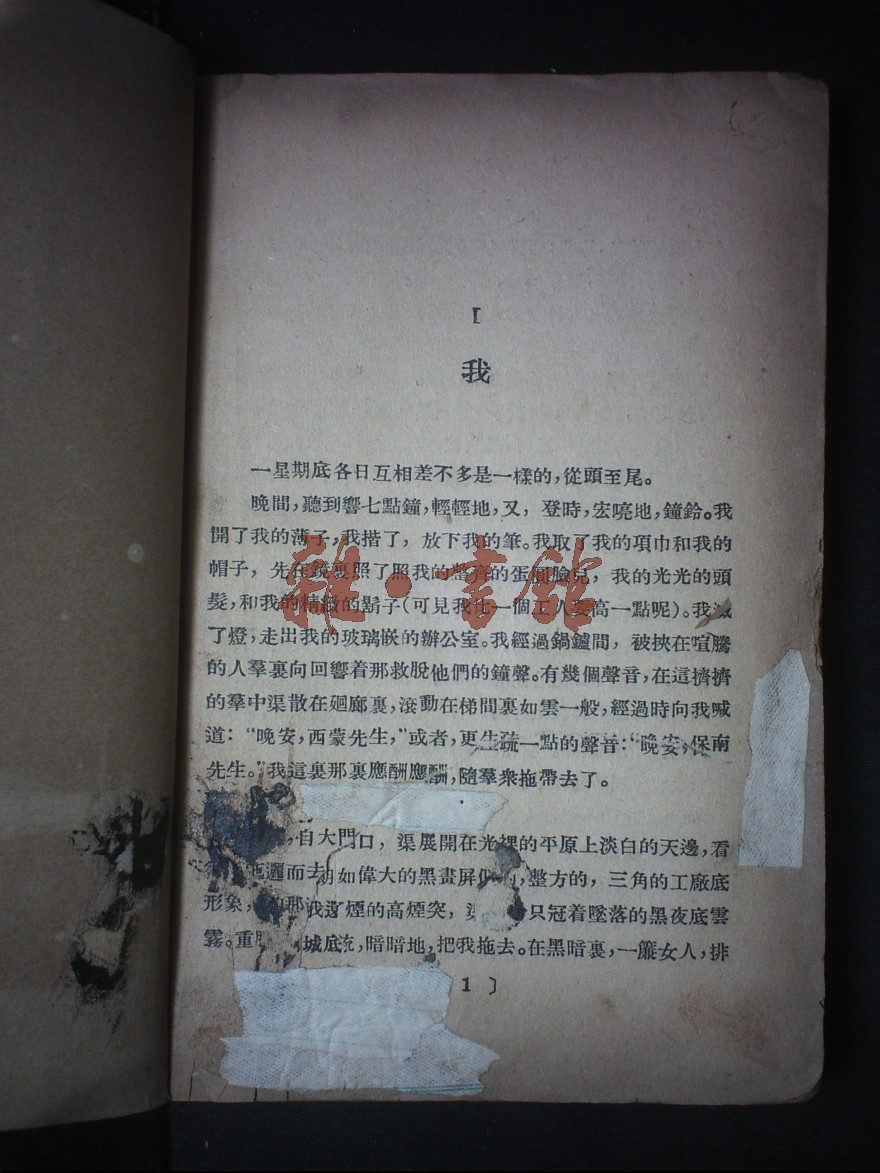 I
我
一星期底各日互相差不多是一樣的，從頭至尾。
晚間，聽到響七點鐘，輕輕地，又，登時，宏喨地，鐘鈴。我
開了我的薄子，我揩了，放下我的筆。我取了我的項巾和我的
帽子，先在鏡裏照了照我的整齊的蛋圓臉兒，我的光光的頭
髮，和我的精緻的鬍子（可見我比一個工人要高一點呢）。我滅
了燈，走出我的玻璃嵌的辦公室。我經過鍋鑪間，被挾在喧騰
的人羣裏向回響着那救脫他們的鐘聲。有幾個聲音，在這擠擠
的羣中渠散在廻廊裏，滾動在梯間裏如雲一般，經過時向我喊
道：“晚安，西蒙先生，”或者，更生疏一點的聲音：“晚安，保南
先生。”我這裏那裏應酬應酬，隨羣衆拖帶去了。
，自大門口，渠展開在光裸的平原上淡白的天邊，看
迤邐而去，如偉大的黑畫屏似，整方的，三角的工廠底
形象，那煙的高煙突，只冠着墜落的黑夜底雲
霧。重城底，暗暗地，把我拖去。在黑暗裏，一簾女人，排
1 〕
雜·書館